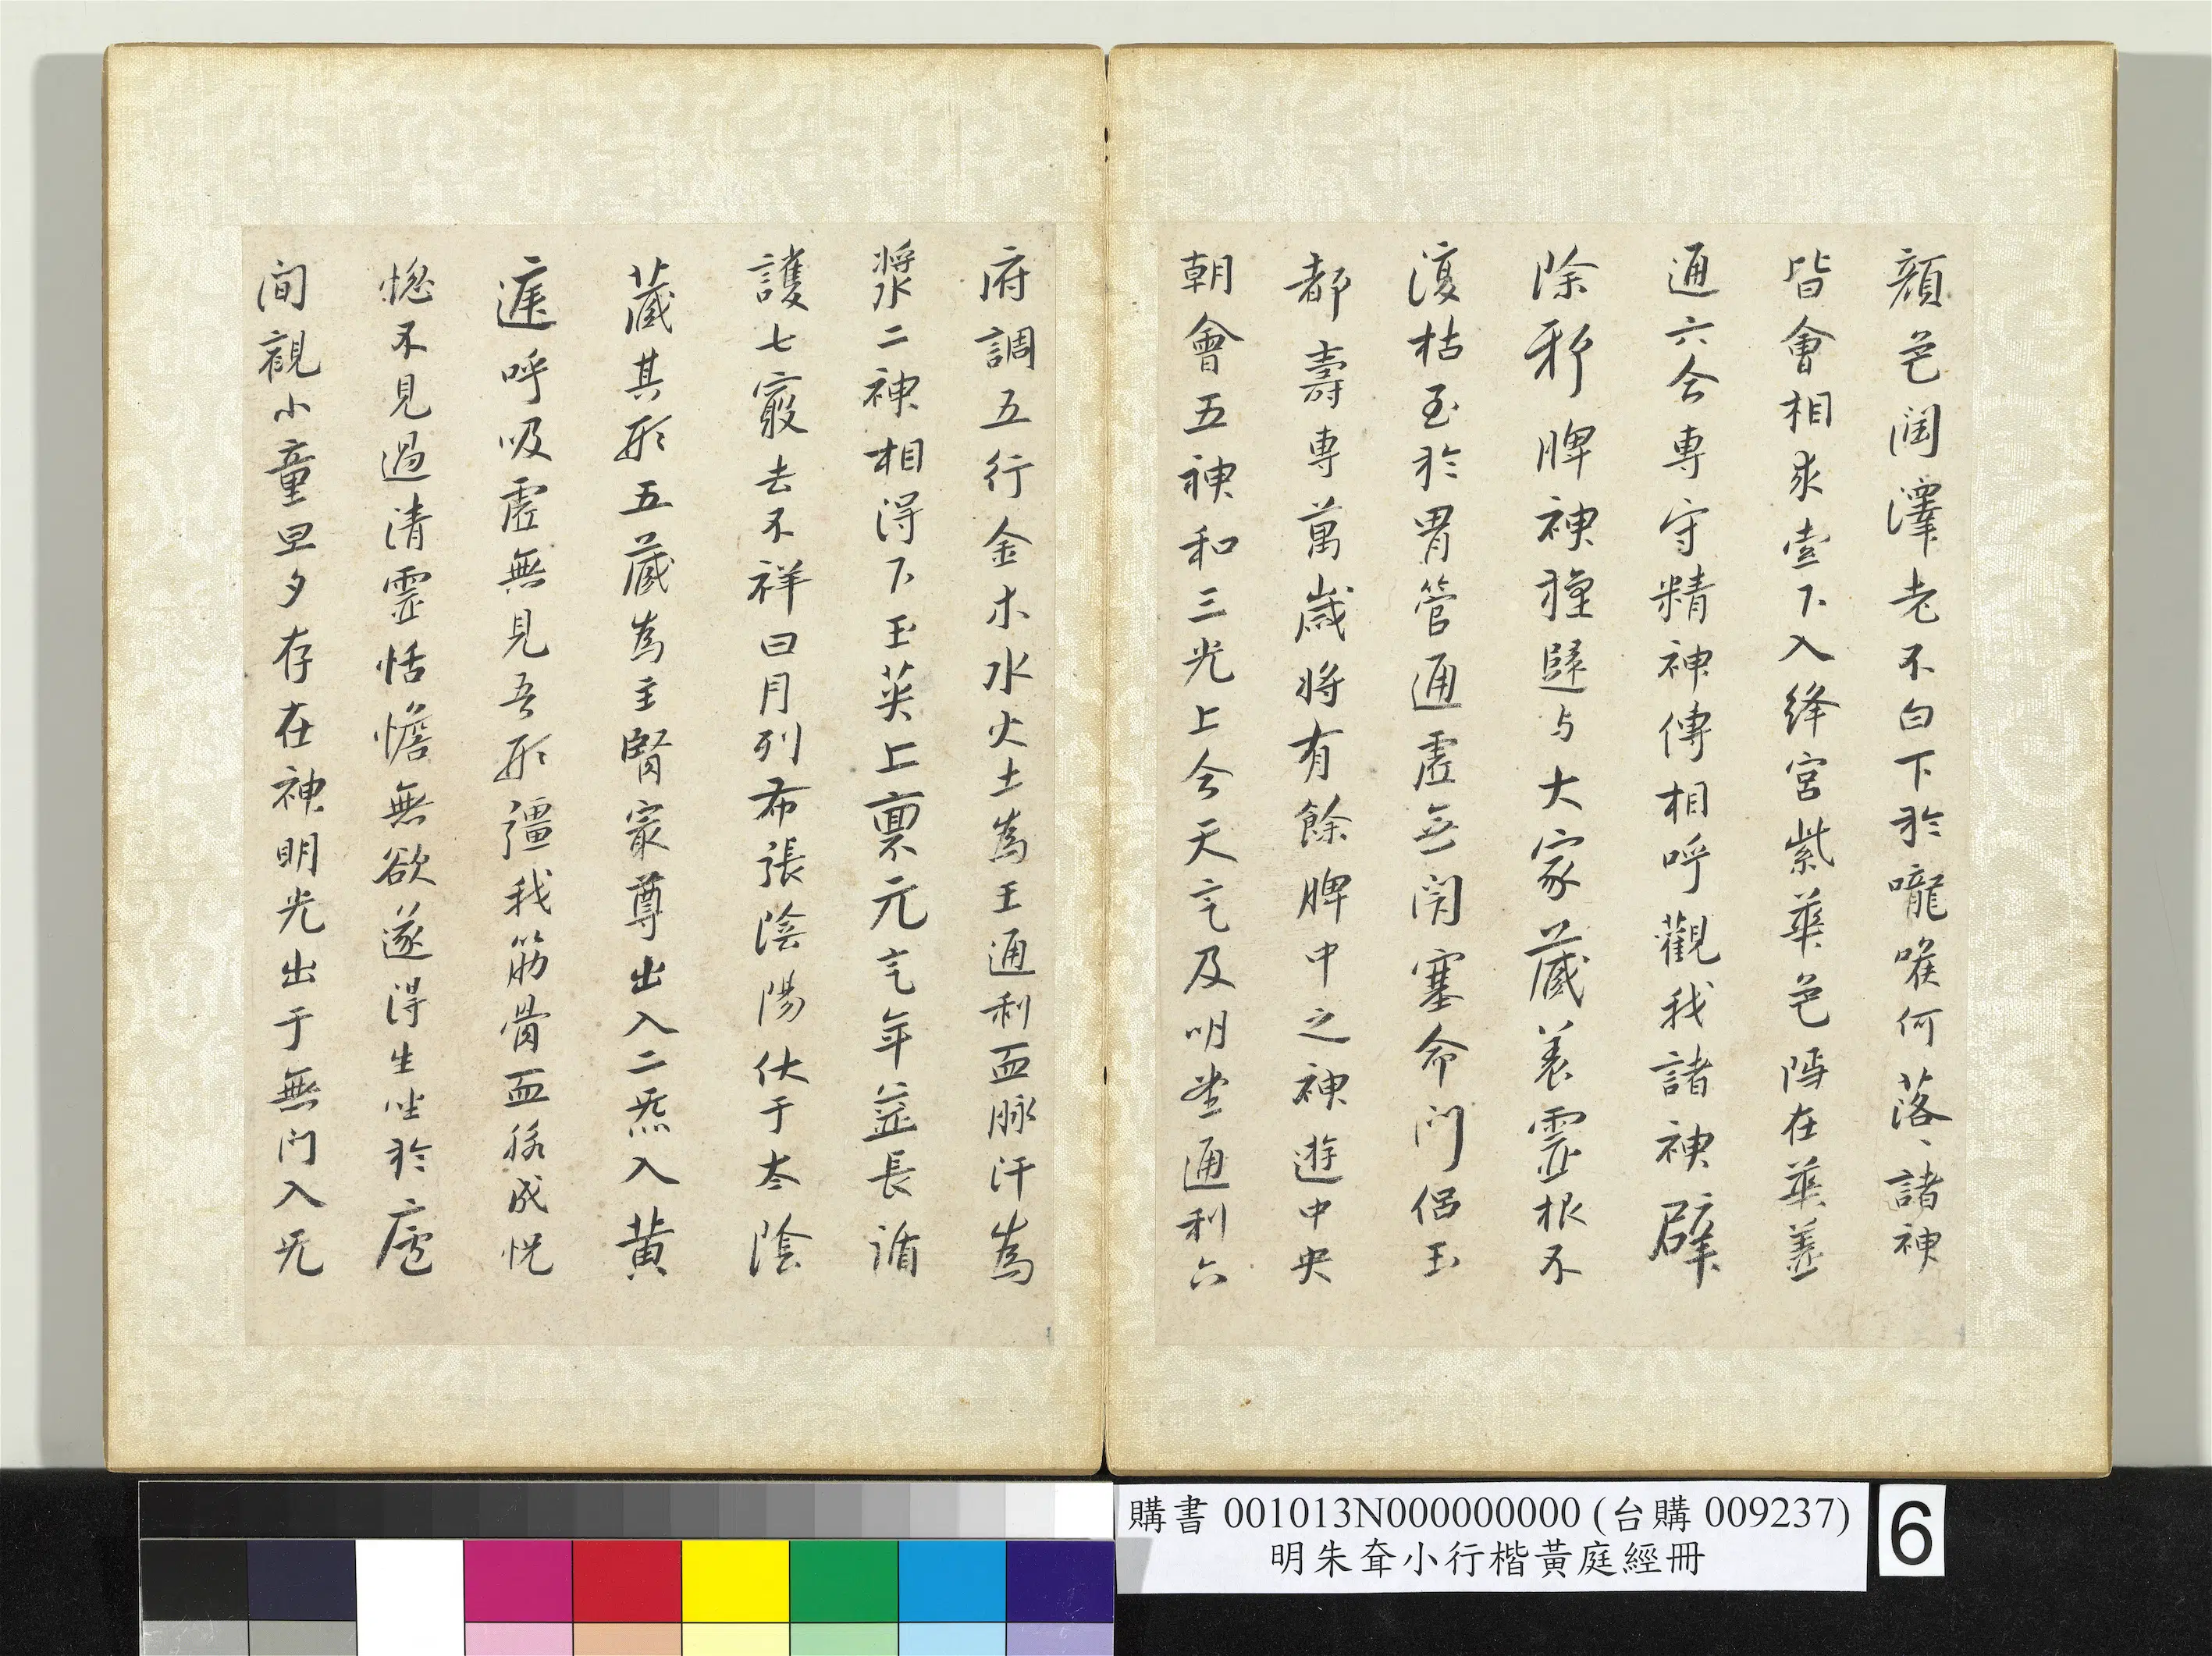 顏色潤澤老不白下於嚨喉何落、諸神
皆會相求索下入絳宮紫華色隱在華蓋
通六合專守精神傳相呼觀我諸神辟
除邪脾神還歸与大家藏養靈根不
復枯至於胃管通虛無閉塞命門侶玉
都壽專萬歲將有餘脾中之神遊中央
朝會五神和三光上合天氣及明堂通利六
府調五行金木水火土為王通利血脉汗為
漿二神相得下玉英上稟元氣年益長循
護七竅去不祥日月列布張陰陽伏于太陰
藏其形五藏為主腎最尊出入二炁入黃
庭呼吸虛無見吾形彊我筋骨血脉成恍
惚不見過清靈恬憺無欲遂得生坐於廬
間觀小童旦夕存在神明光出于無門入无
購書 001013N000000000 (台購 009237)
明朱耷小行楷黃庭經冊
6